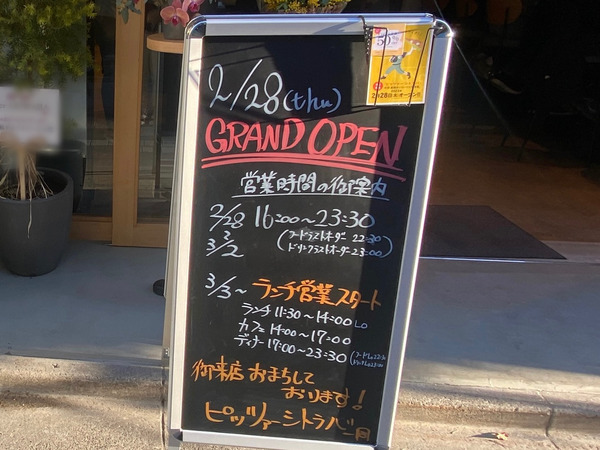 2/28(thu)
GRAND OPEN
営業時間の御案内
2/28 16:00〜23:30
3/2
(フードラストオーダー 22:30
ドリンクラストオーダー 23:00)
3/3〜 ランチ営業スタート
ランチ 11:30〜14:00 LO
カフェ 14:00〜17:00
ディナー 17:00〜23:30
御来店 おまちして
おります!
ピッツァーシトラバ一同
50%